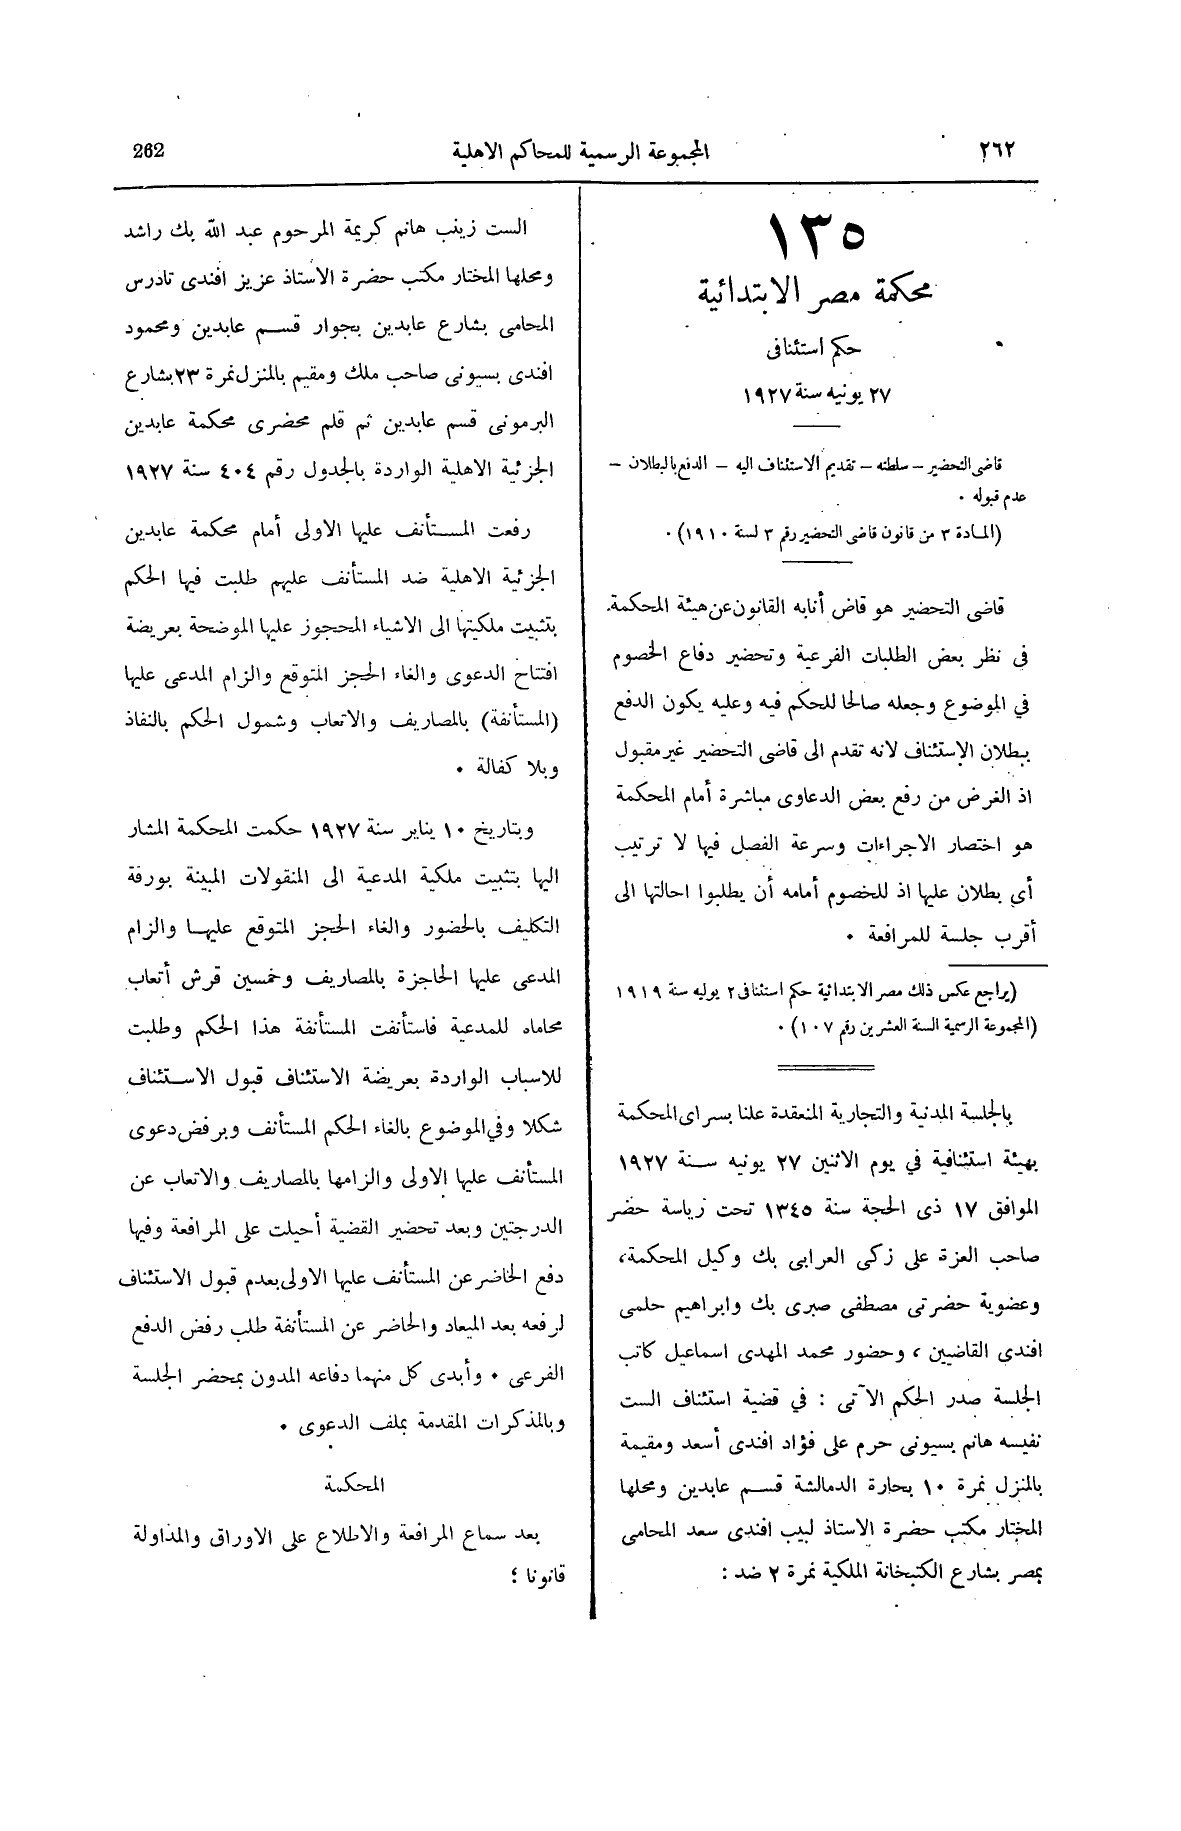 ٢٦٢
المجموعة الرسمية للمحاكم الاهلية
262
١٣٥
محكمة مصر الابتدائية
حكم استئنافى
٢٧ يونيه سنة ١٩٢٧
قاضى التحضير – سلطته – تقديم الاستئناف اليه – الدفع بالبطلان –
عدم قبوله .
(المادة ٣ من قانون قاضى التحضير رقم ٣ لسنة ١٩١٠) .
قاضى التحضير هو قاض أنابه القانون عن هيئة المحكمة
فى نظر بعض الطلبات الفرعية وتحضير دفاع الخصوم
في الموضوع وجعله صالحا للحكم فيه وعليه يكون الدفع
ببطلان الإستئناف لانه تقدم الى قاضى التحضير غير مقبول
اذ الغرض من رفع بعض الدعاوى مباشرة أمام المحكمة
هو اختصار الاجراءات وسرعة الفصل فيها لا ترتيب
أى بطلان عليها اذ للخصوم أمامه أن يطلبوا احالتها الى
أقرب جلسة للمرافعة .
(يراجع عكس ذلك مصر الابتدائية حكم استئنافى ٢ يوليه سنة ١٩١٩
(المجموعة الرسمية السنة العشرين رقم ١٠٧) .
بالجلسة المدنية والتجارية المنعقدة علنا بسراى المحكمة
بهيئة استئنافية في يوم الاثنين ٢٧ يونيه سنة ١٩٢٧
الموافق ١٧ ذى الحجة سنة ١٣٤٥ تحت رياسة حضر
صاحب العزة على زكى العرابى بك وكيل المحكمة،
وعضوية حضرتى مصطفى صبرى بك وابراهيم حلمى
افندى القاضيين ، وحضور محمد المهدى اسماعيل كاتب
الجلسة صدر الحكم الآتى : في قضية استئناف الست
نفيسه هانم بسيونى حرم على فؤاد افندى أسعد ومقيمة
بالمنزل نمرة ١٠ بحارة الدمالشة قسم عابدين ومحلها
المختار مكتب حضرة الاستاذ لبيب افندى سعد المحامى
بمصر بشارع الكتبخانة الملكية نمرة ٢ ضد :
الست زينب هانم كريمة المرحوم عبد الله بك راشد
ومحلها المختار مكتب حضرة الأستاذ عزيز افندى تادرس
المحامى بشارع عابدين بجوار قسم عابدين ومحمود
افندى بسيونى صاحب ملك ومقيم بالمنزل نمرة ٢٣ بشارع
البرمونى قسم عابدين ثم قلم محضرى محكمة عابدين
الجزئية الاهلية الواردة بالجدول رقم ٤٠٤ سنة ١٩٢٧
رفعت المستأنف عليها الاولى أمام محكمة عابدين
الجزئية الاهلية ضد المستأنف عليهم طلبت فيها الحكم
بتثبيت ملكيتها الى الاشياء المحجوز عليها الموضحة بعريضة
افتتاح الدعوى والغاء الحجز المتوقع والزام المدعى عليها
(المستأنفة) بالمصاريف والاتعاب وشمول الحكم بالنفاذ
وبلا كفالة .
وبتاريخ ١٠ يناير سنة ١٩٢٧ حكمت المحكمة المشار
اليها بتثبيت ملكية المدعية الى المنقولات المبينة بورقة
التكليف بالحضور والغاء الحجز المتوقع عليها والزام
المدعى عليها الحاجزة بالمصاريف وخمسين قرش أتعاب
محاماه للمدعية فاستأنفت المستأنفة هذا الحكم وطلبت
للاسباب الواردة بعريضة الاستئناف قبول الاستئناف
شكلا وفي الموضوع بالغاء الحكم المستأنف وبرفض دعوى
المستأنف عليها الاولى والزامها بالمصاريف والاتعاب عن
الدرجتين وبعد تحضير القضية أحيلت على المرافعة وفيها
دفع الحاضر عن المستأنف عليها الاولى بعدم قبول الاستئناف
لرفعه بعد الميعاد والحاضر عن المستأنفة طلب رفض الدفع
الفرعى . وأبدى كل منهما دفاعه المدون بمحضر الجلسة
وبالمذكرات المقدمة بملف الدعوى .
المحكمة
بعد سماع المرافعة والاطلاع على الاوراق والمداولة
قانونا ؛